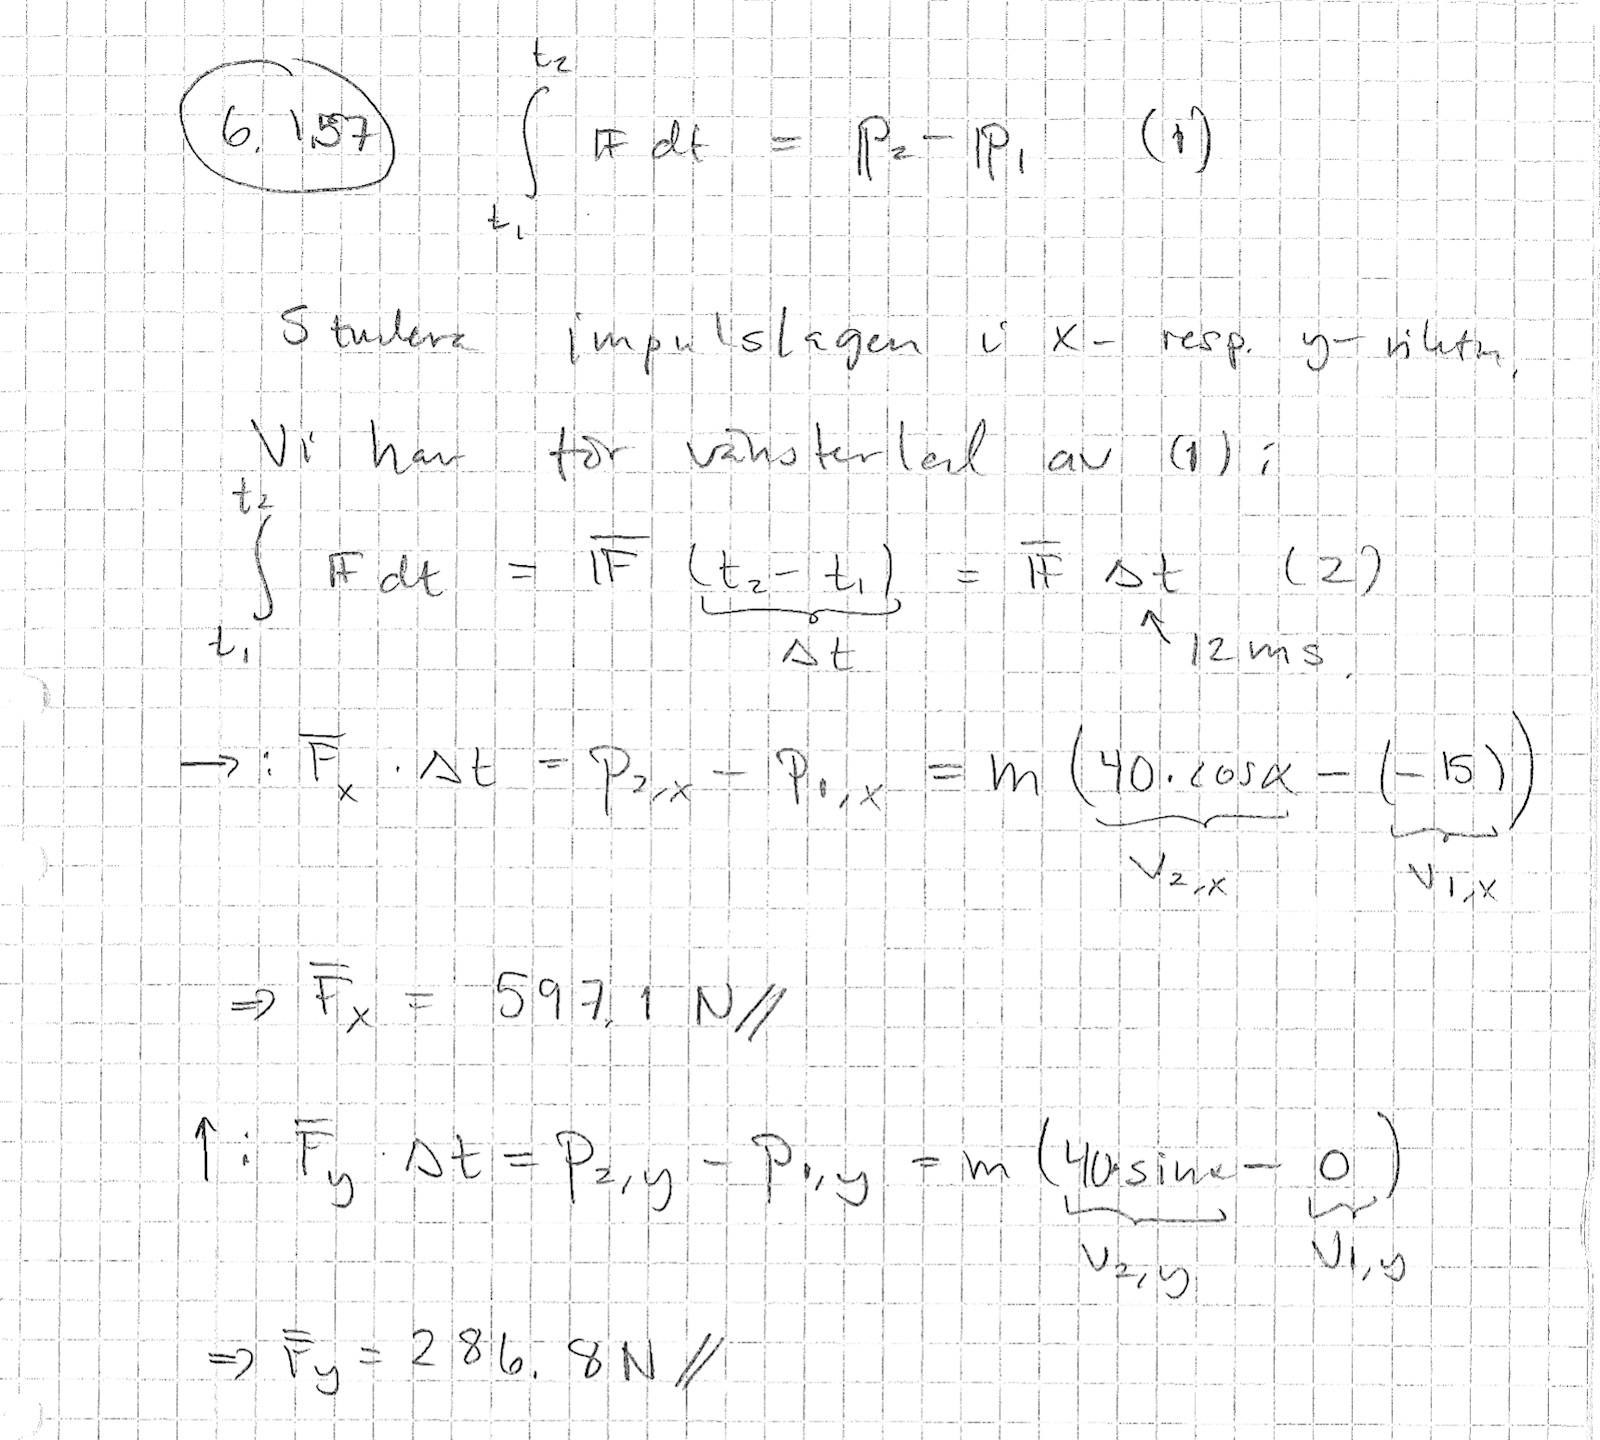 6.157 ∫_{t₁}^{t₂} 𝔽 dt = ℙ₂ - ℙ₁ (1)
Studera impulslagen i x- resp. y-riktn.
Vi har för vänsterled av (1):
∫_{t₁}^{t₂} 𝔽 dt = 𝔽̅ (t₂ - t₁) = 𝔽̅ Δt (2)
Δt ↑ 12 ms.
→: F̅ₓ · Δt = P₂,ₓ - P₁,ₓ = m (40·cosα - (-15))
V₂,ₓ V₁,ₓ
⇒ F̅ₓ = 597.1 N //
↑: F̅_y · Δt = P_{2,y} - P_{1,y} = m (40·sinα - 0)
V_{2,y} V_{1,y}
⇒ F̅_y = 286.8 N //